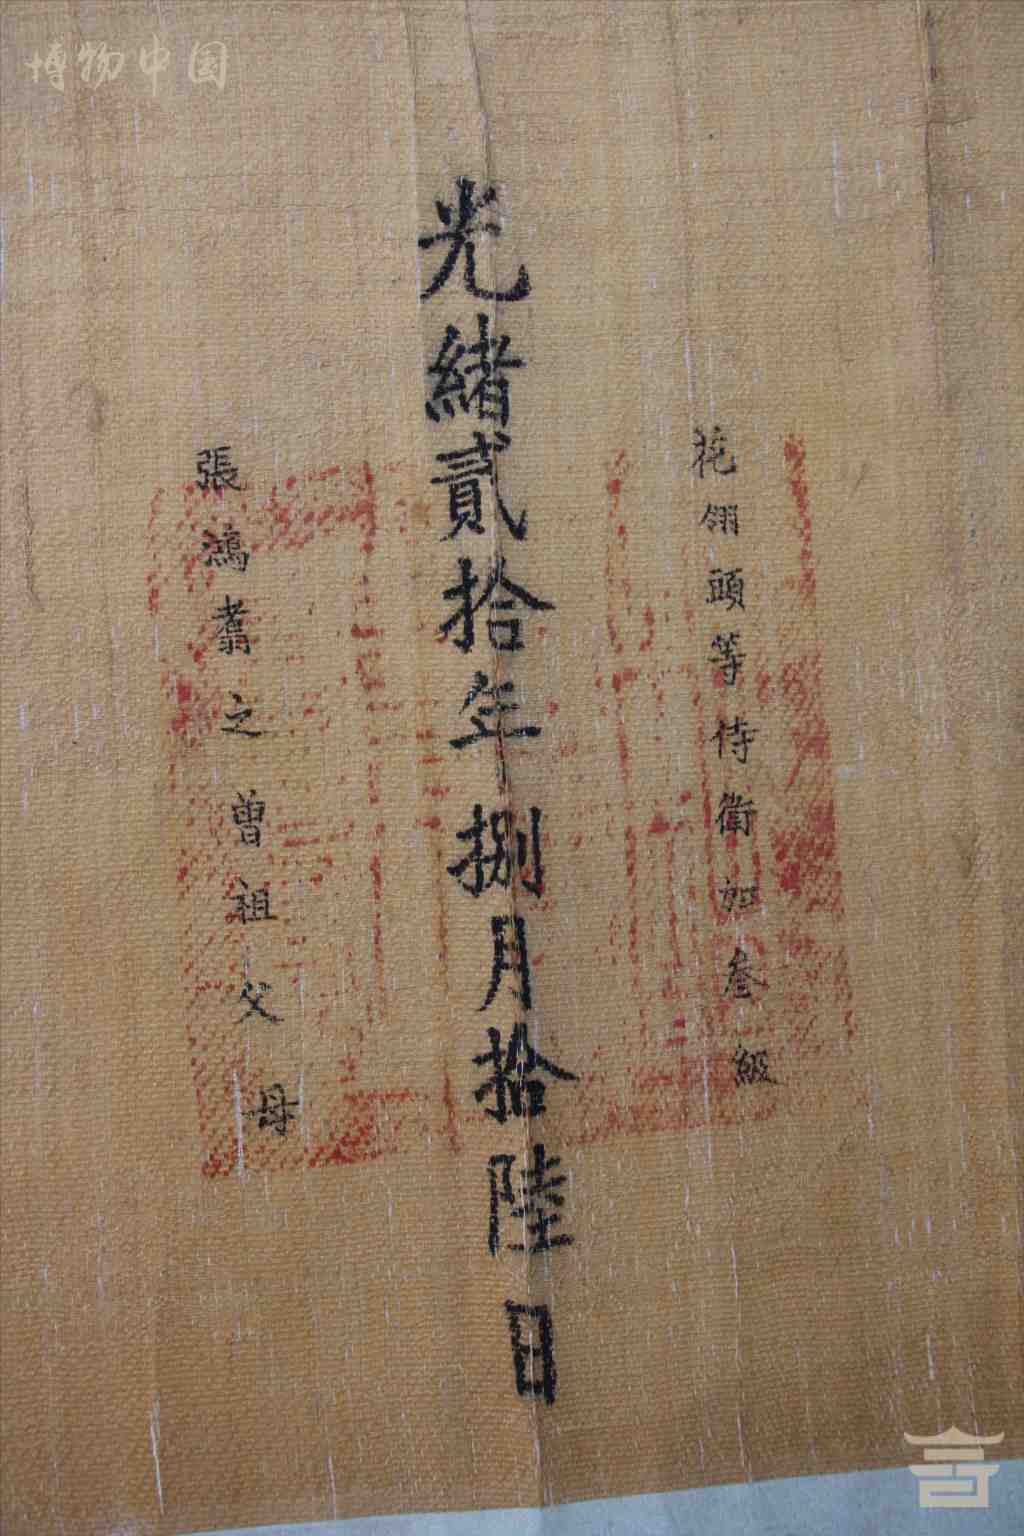 博物中国
花翎頭等侍衛加叁級
光緒貳拾年捌月拾陸日
張鴻翥之曾祖父母